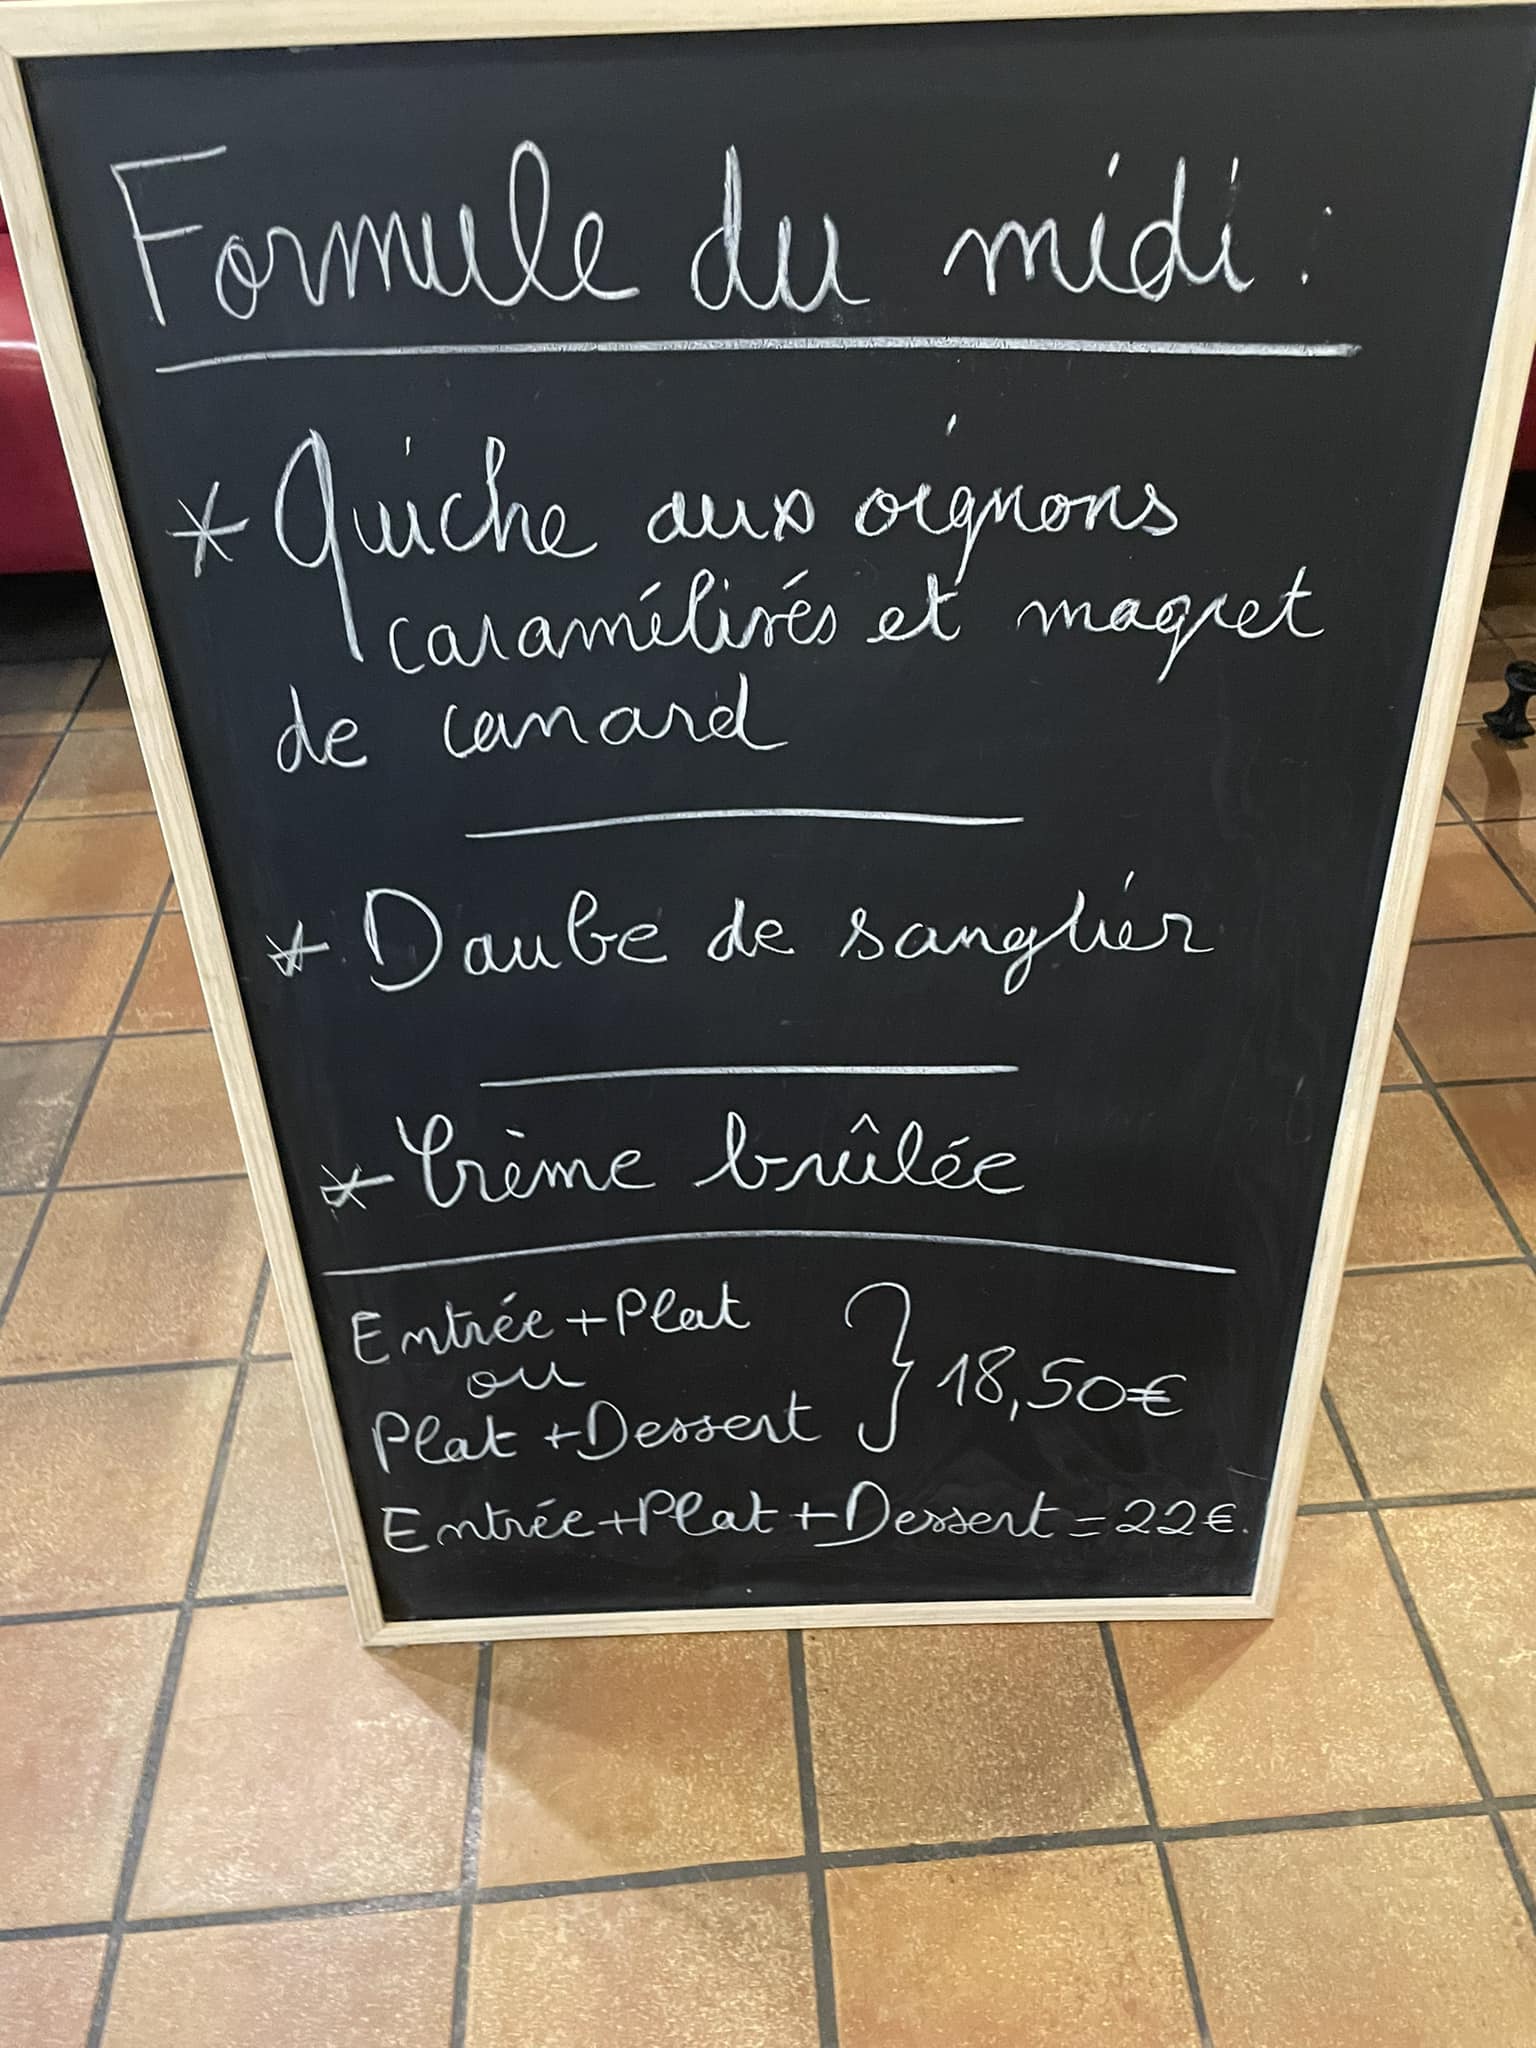 Formule du midi :
* Quiche aux oignons
caramélisés et magret
de canard
* Daube de sanglier
* Crème brûlée
Entrée + Plat
ou
Plat + Dessert } 18,50€
Entrée + Plat + Dessert = 22€.